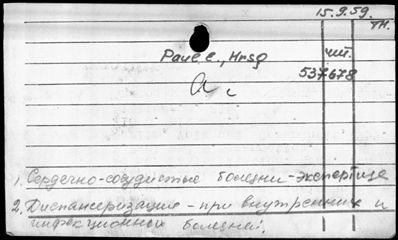 15.9.59.
тн.
Paul e., Hrsg
чит.
537678
a
1. Сердечно-сосудистые болезни - экспертиза
2. Диспансеризация - при внутренних и
инфекционных болезней.